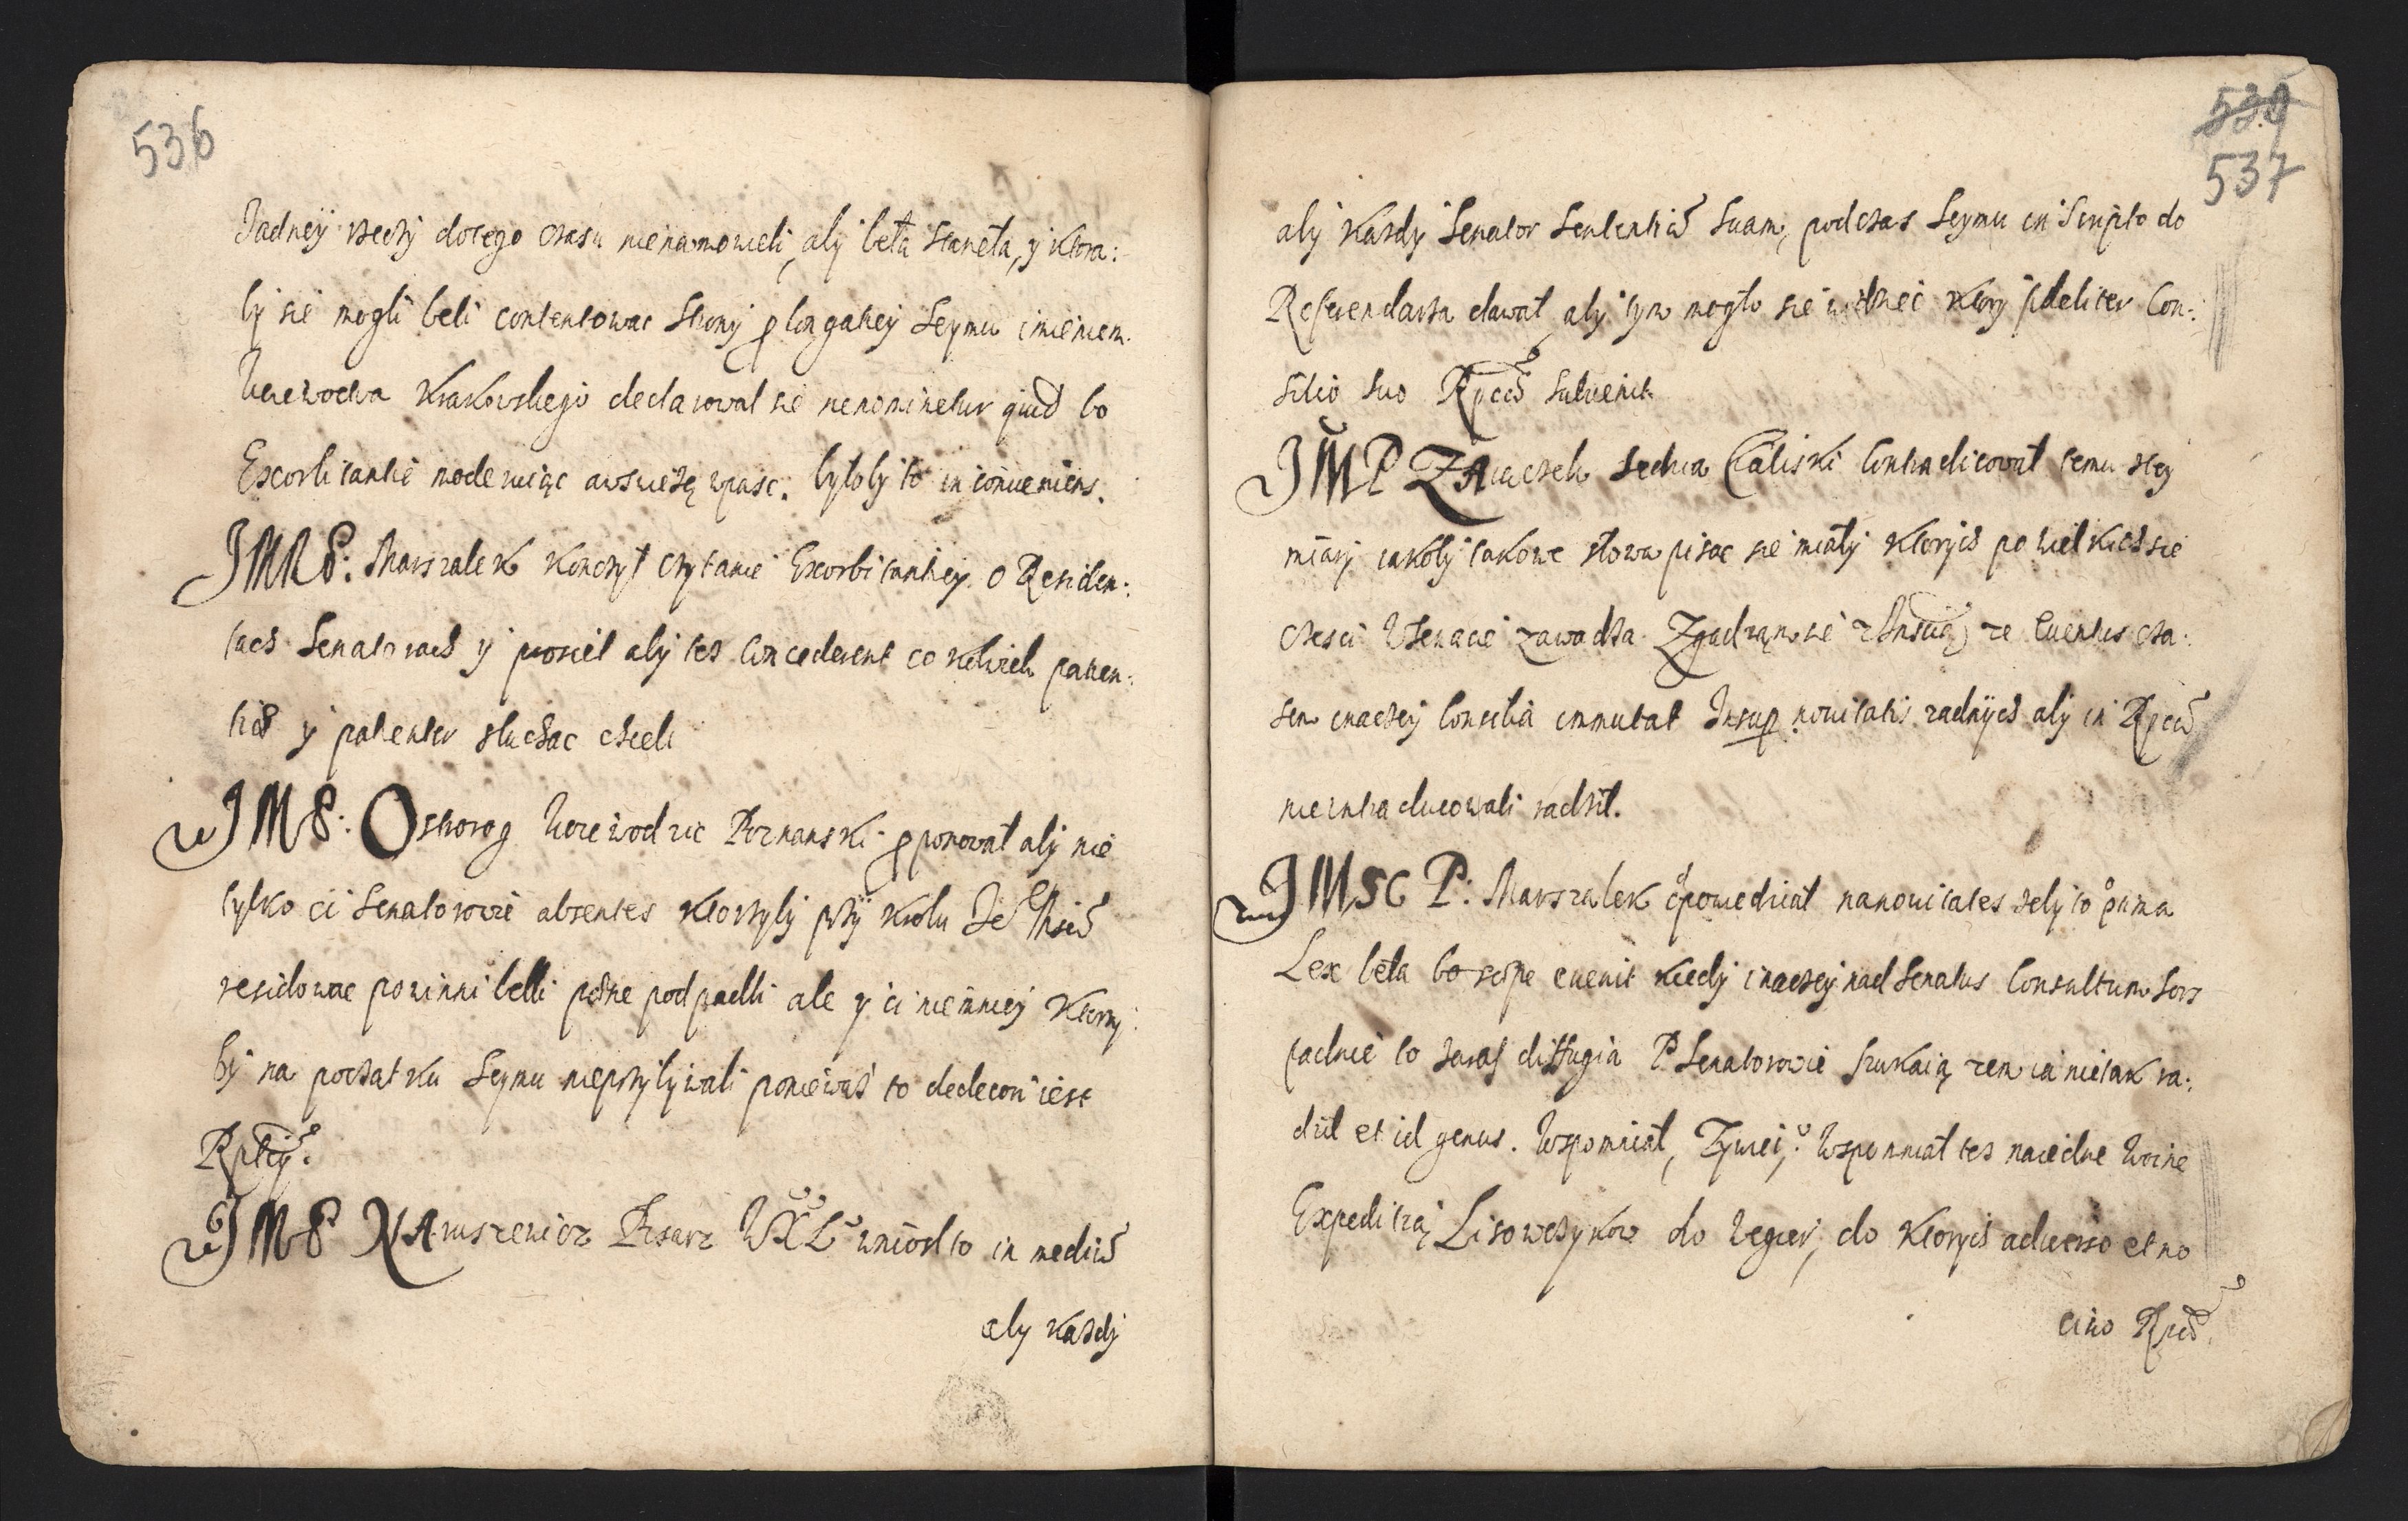 536
Zadnej rzeczy dotego czasu nienamowieli, aby beła stanęła, y ktora:
by się mogli beli contentować Strony prolongatiey Seymu imieniem
Woiewodztwa Krakowskiego declarował się nenominetur quid bo
Exorbitantie moderuiąc awswieżą wpaść. byłoby to inconueniens.
JMP: Marszałek konczył czytanie Exorbitantiey o Residen:
tach Senatorach y prosieł aby tes concederent co rotwich patien:
tich y patienter słuchac chcieli
JMP: Ostrorog Woiewodzic Poznanski proponował aby nie
tylko ci Senatorowie absentes ktorzyby przy krolu Je Msci
residowac powinni belli pœne podpadli ale y ci niemniey ktorzy:
by na początku Seymu nieprzybywali ponieważ to dedecori iest
Rptey.
JMP NAruszewicz Pisarz WXL wniosł to in mediũ
aby każdy
539
537
aby każdy Senator Sententiã suam, podczas Seymu in Scripto do
Referendarza dawał, aby tym mogło się widzieć ktory fideliter Con:
silio suo Rpceã subuenit
JMP ZAięczek Sędzia Caliski Contradicował temu z tey
miary iakoby takowe słowa pisać się miały ktorych po wielkich się
części w Senacie zawadza. Zgadzam się z Mscią że Euentus cza:
sem inaczey Consilia immutat Insup. nouitatis żadnych aby in Rpcã
nieintraducowali radził.
JMSC P: Marszałek opowiedział nanouitates żeby to prima
Lex beła bo sæpe euenit kiedy inaczey nad Senatus Consultum Sors
padnie to zaraz diffugia P Senatorowie szukaią żem ia nietak ra:
dził et id genus. Wspomniał, Zywei, Wspomniał tes naiedne Woine
Expeditią Lisowczykow do Węgier, do ktorych aduerso et no
ciuo Rpcã